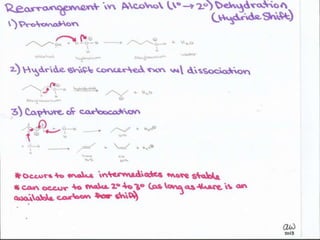 Rearrangement in Alcohol (1° → 2°) Dehydration
(Hydride Shift)
1) Protonation
+ H₂O
alcohol
water
2) Hydride shift concerted rxn w/ dissociation
+ H₂O
3) Capture of carbocation
* Occurs to make intermediates more stable
* can occur to make 2° to 3° (as long as there is an
available carbon for shift)
aw
2013